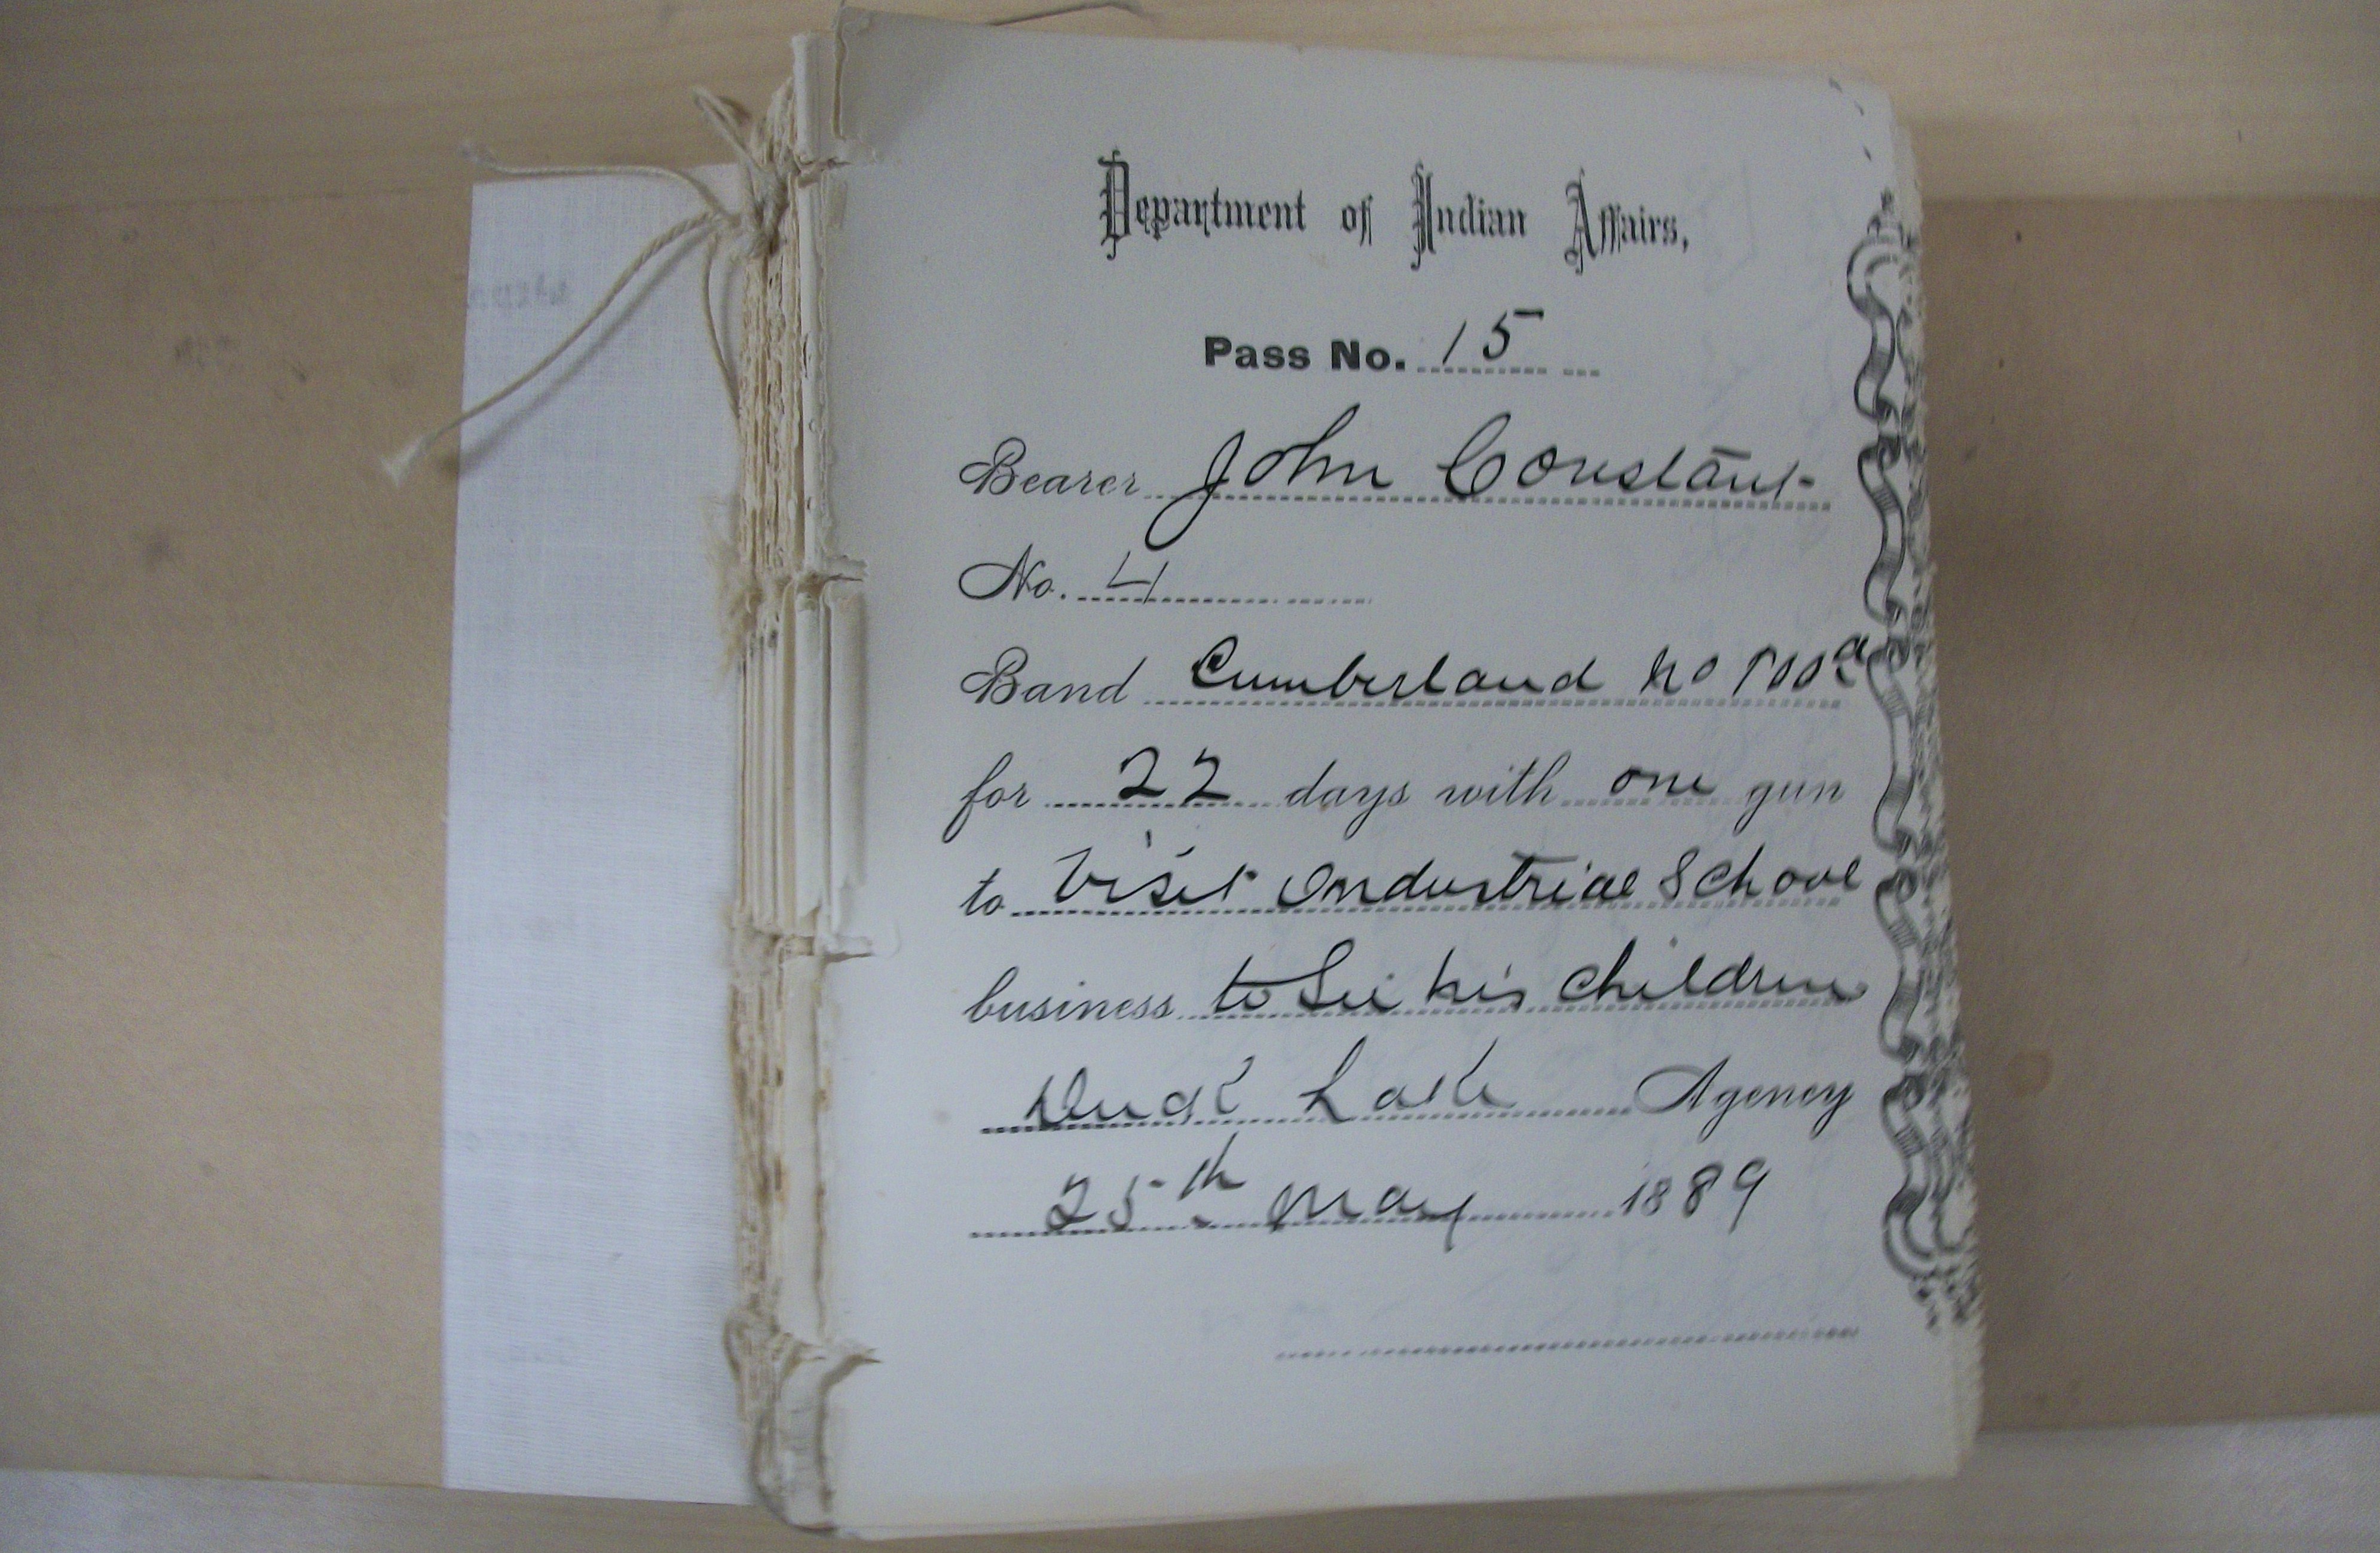 Department of Indian Affairs,
Pass No. 15
Bearer John Constant
No. 4
Band Cumberland No 100a
for 22 days with one gun
to Visit Industrial School
business to See his children
Duck Lake Agency
25th May 1889